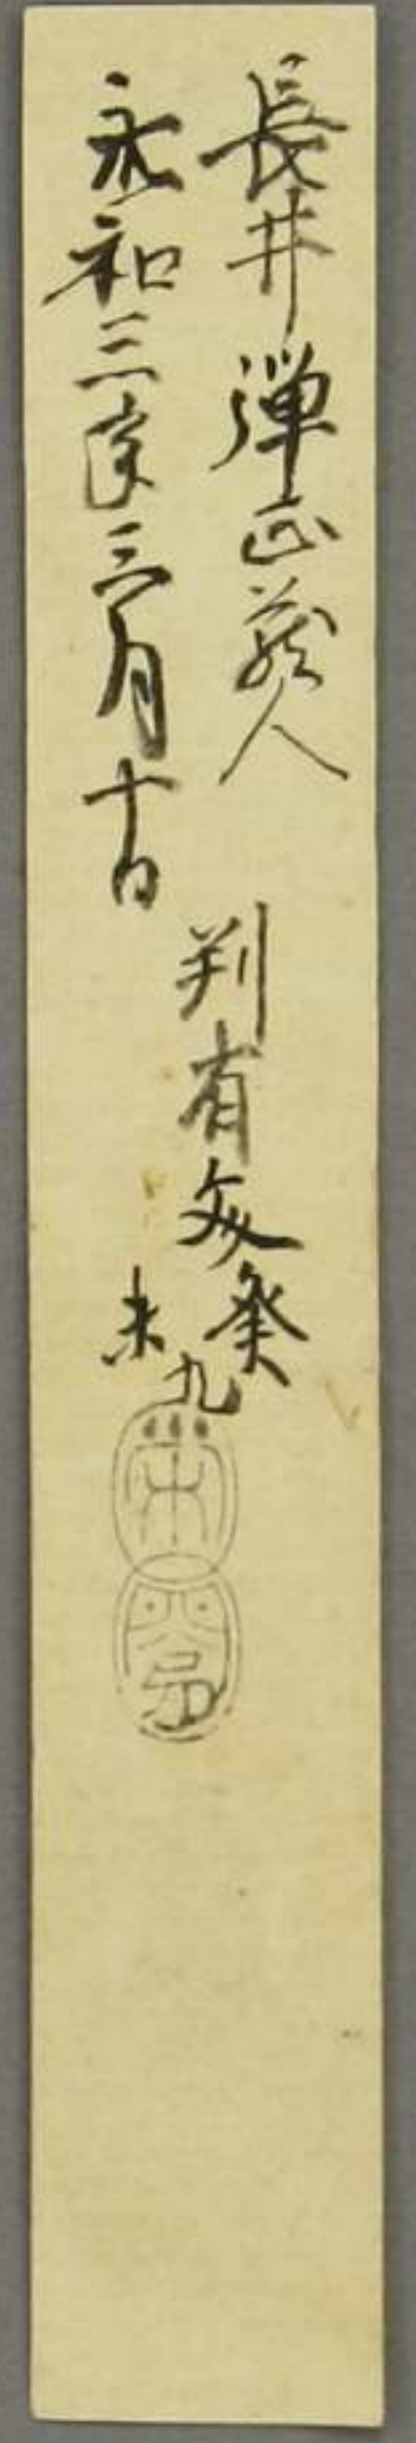 長井弾正蔵人
永和三年三月十日
判有
癸
未
九